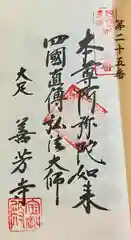 第二十五番
本尊阿弥陀如来
四國直傳弘法大師
大足
善芳寺